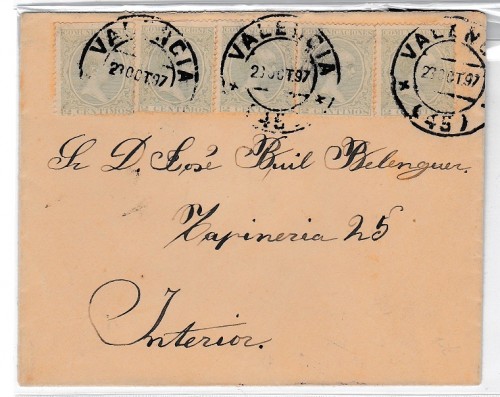 VALENCIA VALENCIA VALENC
23 OCT 97 23 OCT 97 23 OCT 97
CENTIMOS
(45)
Sr D. José Buil Belenguer.
Tapineria 25
Interior.